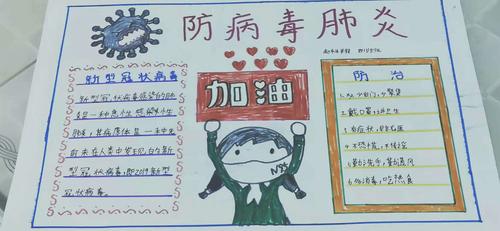 防病毒肺炎
新型冠状病毒
新型冠状病毒感染的肺
炎是一种急性感染性
肺炎，其病原体是一种
前未在人类中发现的新
型冠状病毒，即2019新型
冠状病毒。
加油
防治
1.少出门，少聚集
2.戴口罩，讲卫生
3.有症状，早就医
4.不恐慌，不传谣
5.勤洗手，勤通风
6.消毒，吃熟食